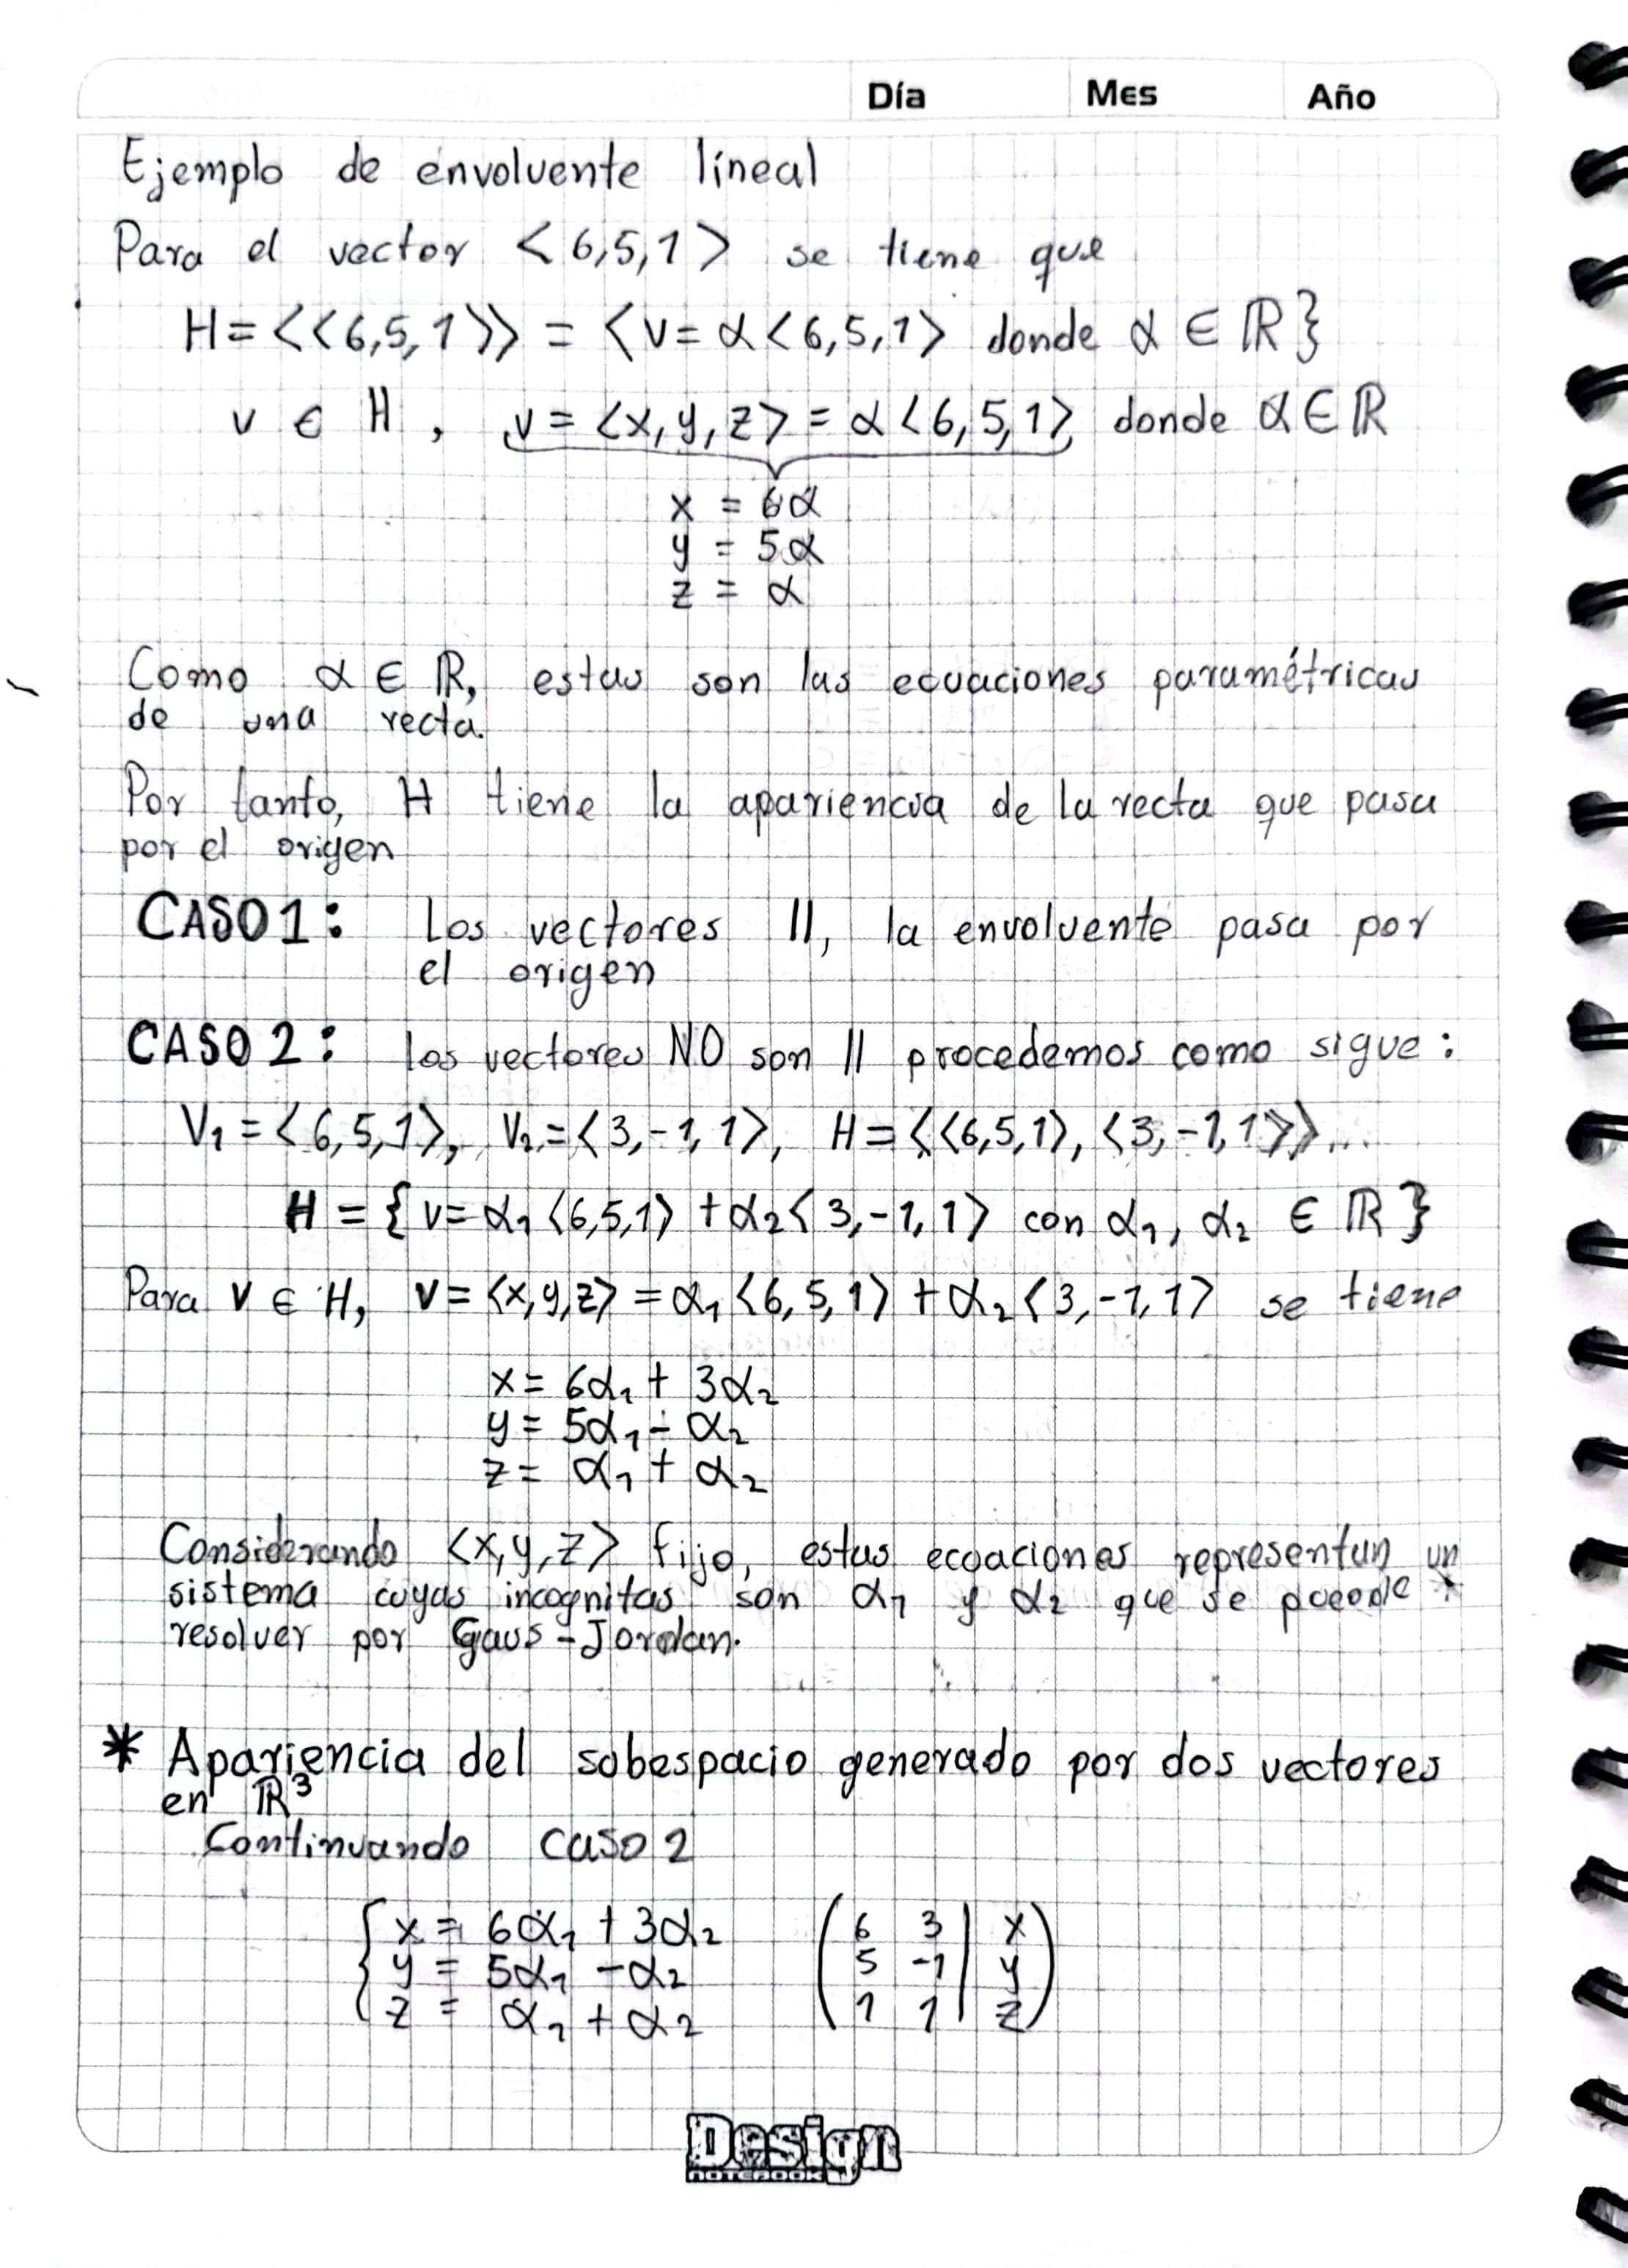 Día Mes Año
Ejemplo de envolvente líneal
Para el vector <6,5,1> se tiene que
H = <<6,5,1>> = <v = α<6,5,1> donde α ∈ ℝ}
v ∈ H, v = <x,y,z> = α<6,5,1> donde α ∈ ℝ
x = 6α
y = 5α
z = α
Como α ∈ ℝ, estas son las ecuaciones paramétricas
de una recta.
Por tanto, H tiene la apariencia de la recta que pasa
por el origen
CASO 1: Los vectores ||, la envolvente pasa por
el origen
CASO 2: los vectores NO son || procedemos como sigue:
V₁ = <6,5,1>, V₂ = <3,-1,1>, H = <<6,5,1>, <3,-1,1>>...
H = {v = α₁<6,5,1> + α₂<3,-1,1> con α₁, α₂ ∈ ℝ}
Para v ∈ H, v = <x,y,z> = α₁<6,5,1> + α₂<3,-1,1> se tiene
x = 6α₁ + 3α₂
y = 5α₁ - α₂
z = α₁ + α₂
Considerando <x,y,z> fijo, estas ecuaciones representan un
sistema cuyas incognitas son α₁ y α₂ que se puede *
resolver por Gaus-Jordan.
* Apariencia del subespacio generado por dos vectores
en ℝ³
Continuando caso 2
{ x = 6α₁ + 3α₂ ( 6 3 | x )
y = 5α₁ - α₂ 5 -1 | y
z = α₁ + α₂ 1 1 | z
Design
NOTEBOOK